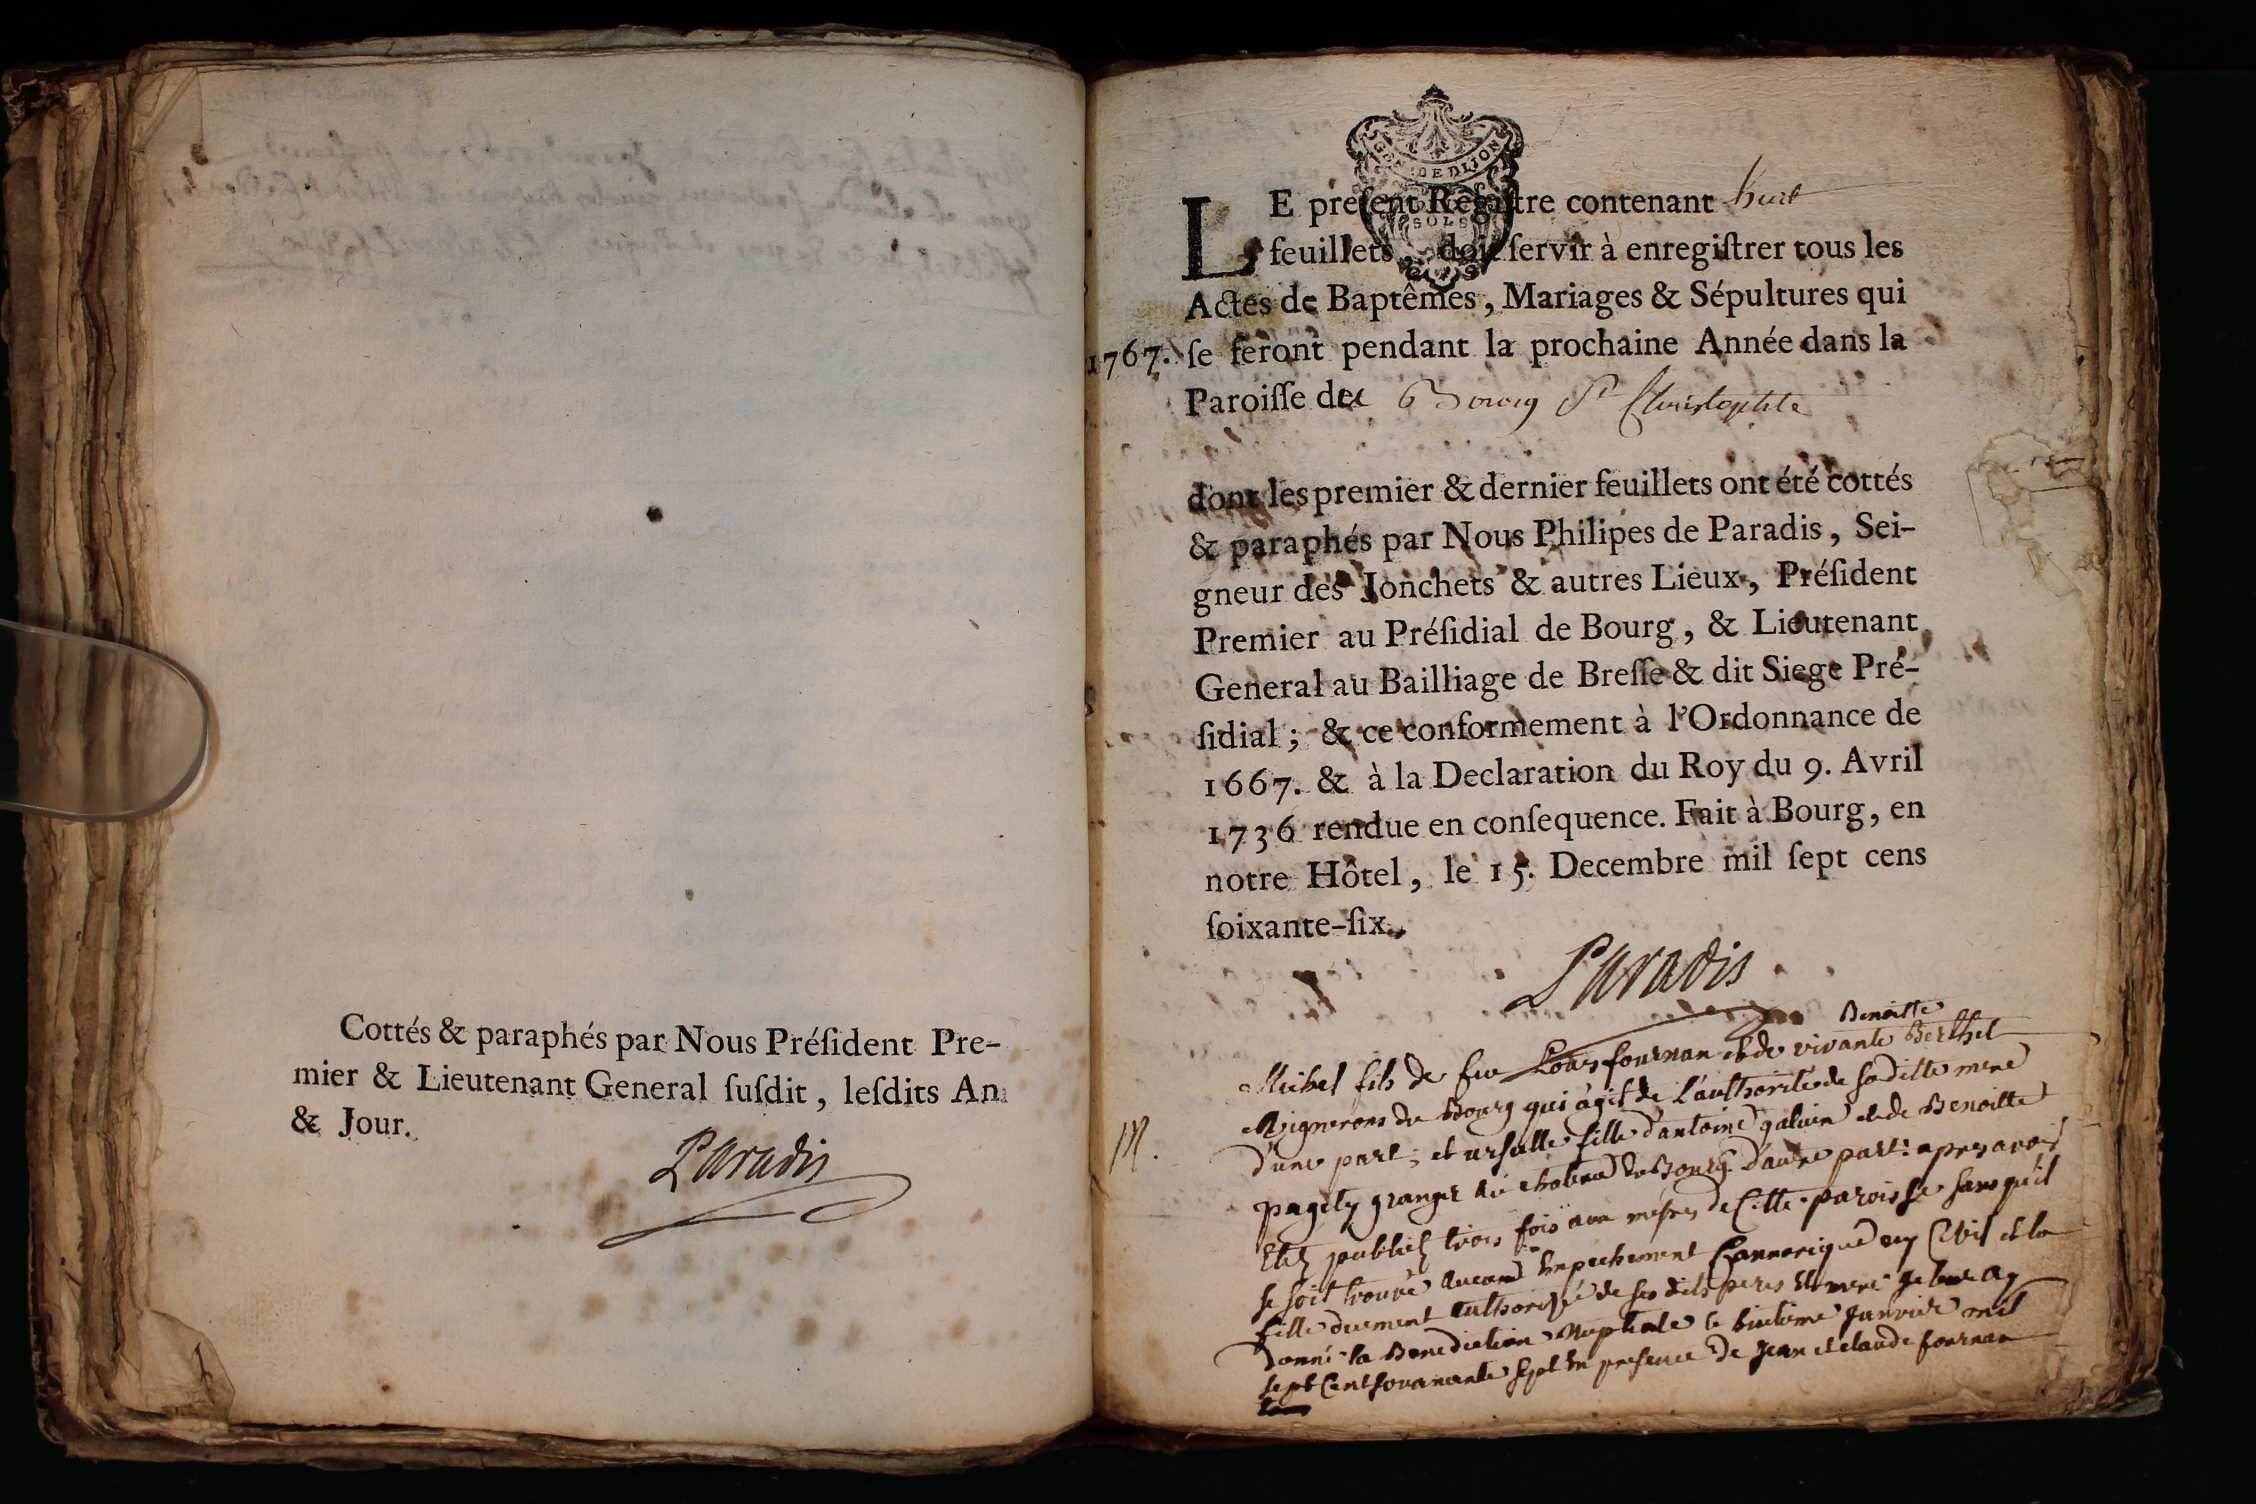 Cottés & paraphés par Nous Préſident Pre-
mier & Lieutenant General ſuſdit, leſdits An
& Jour.
Paradis
GEN DE DIJON
SOLS
LE preſent Regiſtre contenant huit
feuillets, doit ſervir à enregiſtrer tous les
Actes de Baptêmes, Mariages & Sépultures qui
1767. ſe feront pendant la prochaine Année dans la
Paroiſſe de Bourg St Christophle
dont les premier & dernier feuillets ont été cottés
& paraphés par Nous Philipes de Paradis, Sei-
gneur des Jonchets & autres Lieux, Préſident
Premier au Préſidial de Bourg, & Lieutenant
General au Bailliage de Breſſe & dit Siege Pré-
ſidial; & ce conformement à l'Ordonnance de
1667. & à la Declaration du Roy du 9. Avril
1736 rendue en conſequence. Fait à Bourg, en
notre Hôtel, le 15. Decembre mil ſept cens
ſoixante-ſix.
Paradis
Benoitte
Michel fils de feu Louis fournan et de vivante Berthet
Vignerons du Bourg qui agit de L'authorité de sa ditte mere
M.
d'une part; et ursulle fille d'antoine et de Benoitte
pagety granger du Bourg d'autre part: apres avoir
Eté publiez trois fois aux messes de Cette paroisse sans qu'il
se soit trouvé aucun Empechement Cannonique ny Civil et la
fille duement authorisé de ses dits peres et mere je leur ay
donné la Benediction Nuptiale le huitieme Janvier mil
sept Cent soixante sept En presence de Jean et claude fournan